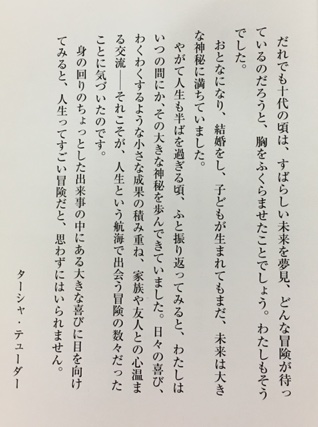 だれでも十代の頃は、すばらしい未来を夢見、どんな冒険が待っ
ているのだろうと、胸をふくらませたことでしょう。わたしもそう
でした。
おとなになり、結婚をし、子どもが生まれてもまだ、未来は大き
な神秘に満ちていました。
やがて人生も半ばを過ぎる頃、ふと振り返ってみると、わたしは
いつの間にか、その大きな神秘を歩んできていました。日々の喜び、
わくわくするような小さな成果の積み重ね、家族や友人との心温ま
る交流――それこそが、人生という航海で出会う冒険の数々だった
ことに気づいたのです。
身の回りのちょっとした出来事の中にある大きな喜びに目を向け
てみると、人生ってすごい冒険だと、思わずにはいられません。
ターシャ・テューダー